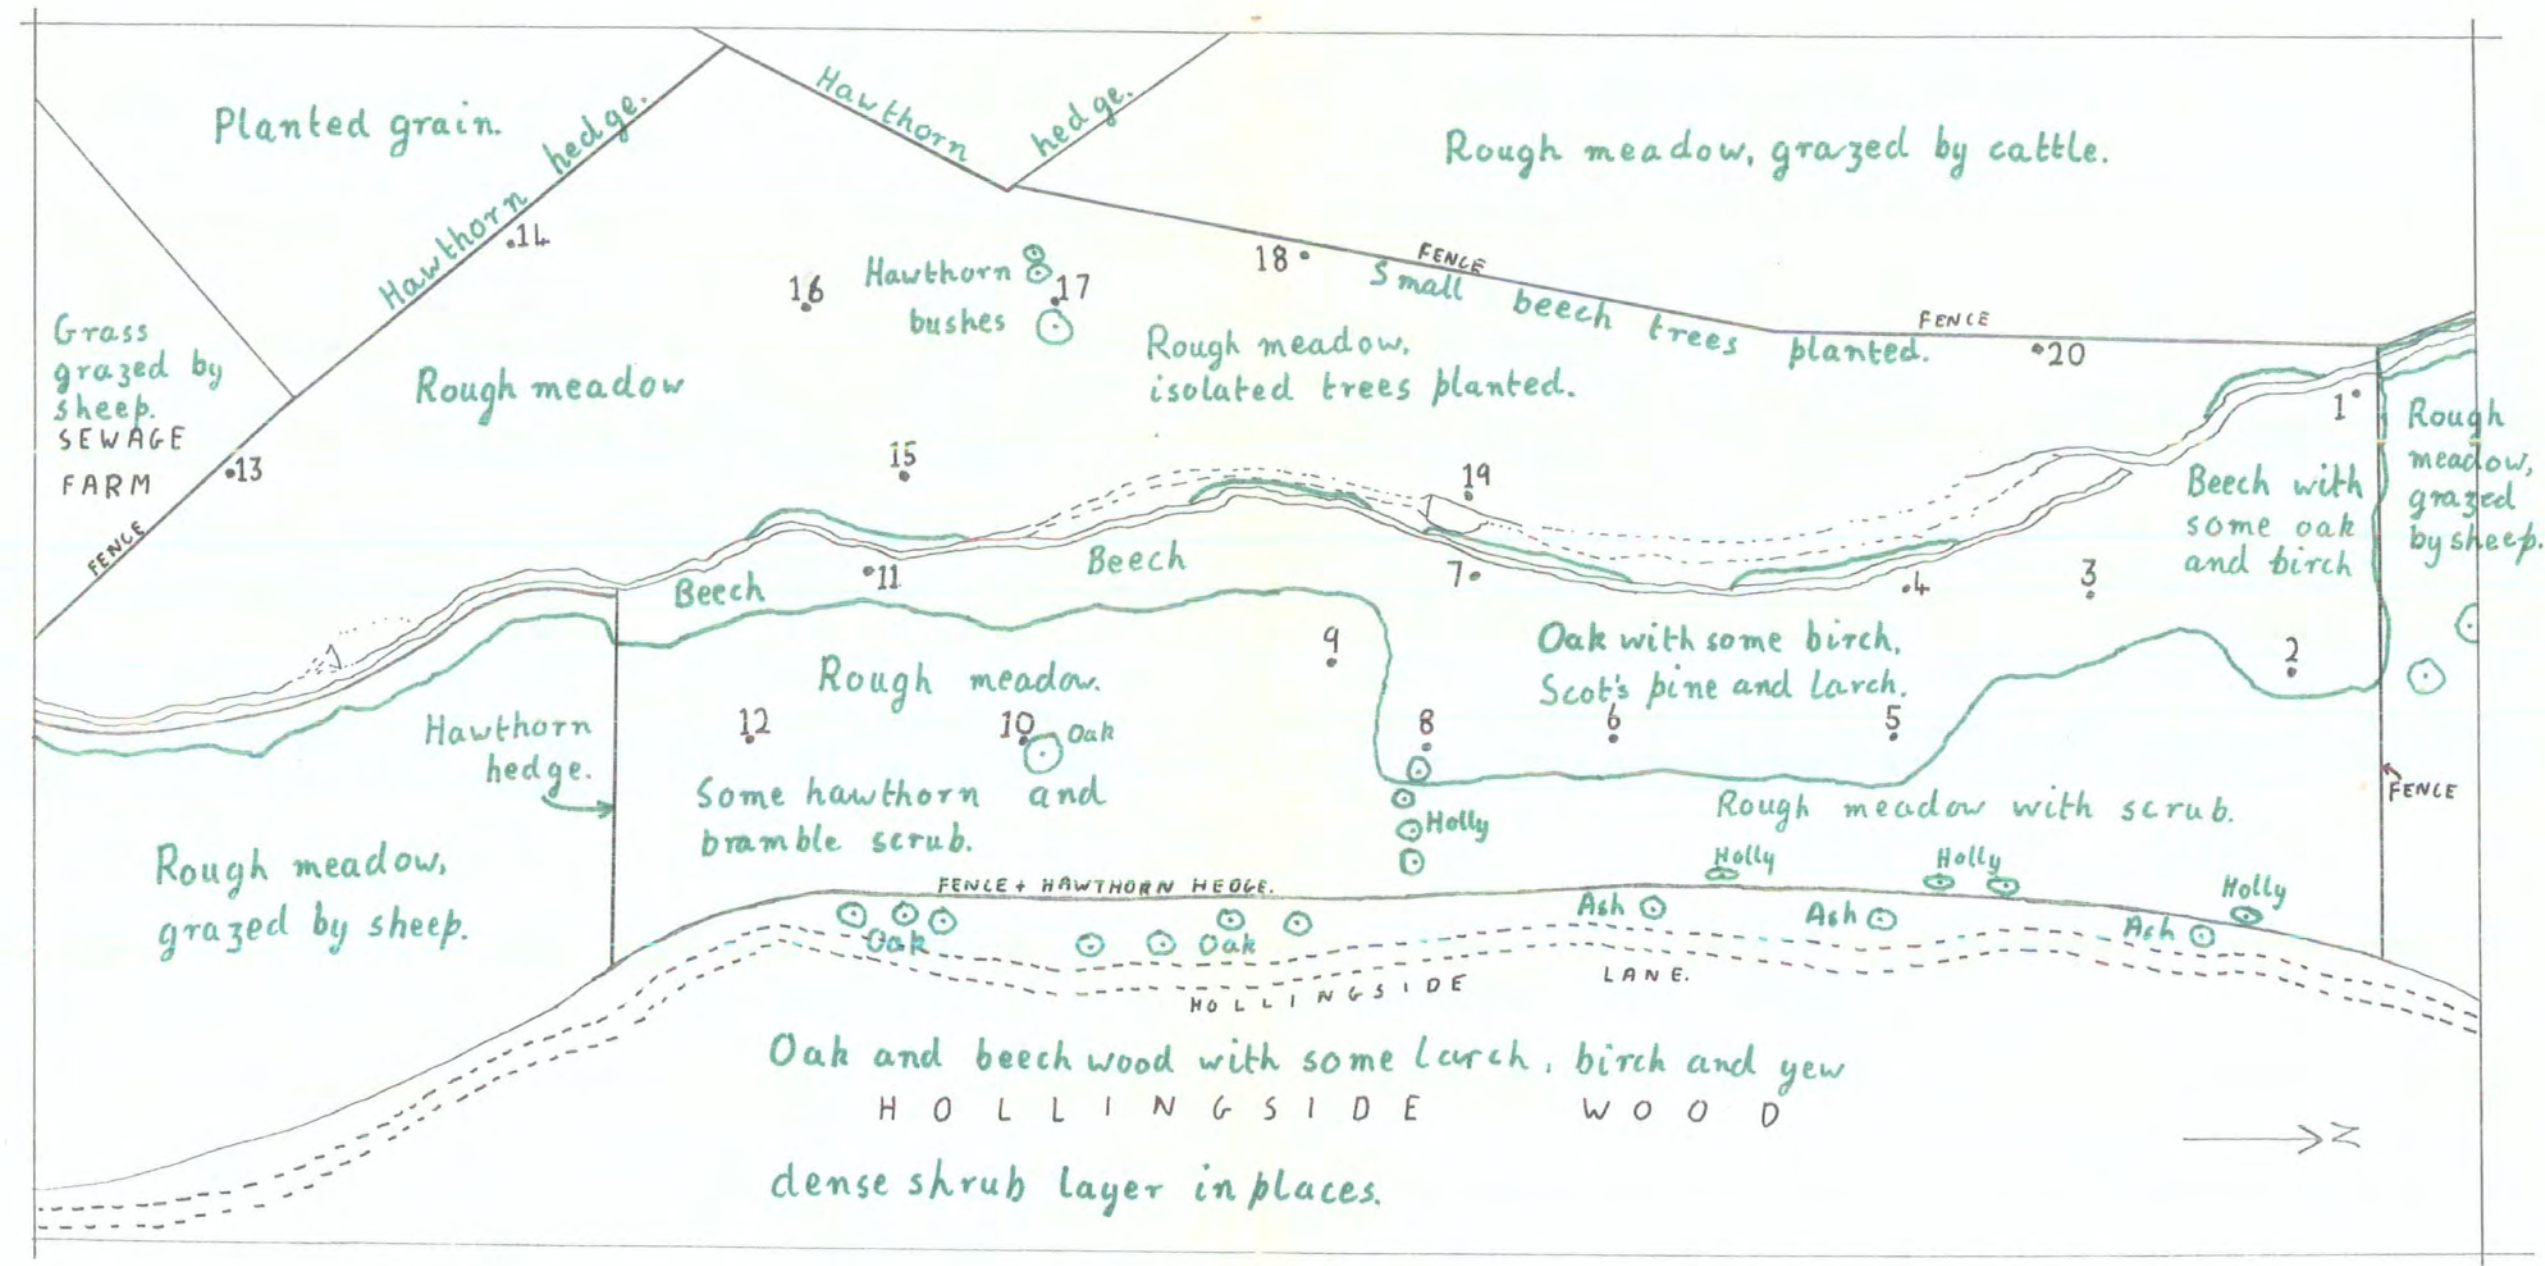 Planted grain.
Hawthorn hedge.
Hawthorn
hedge.
Rough meadow, grazed by cattle.
.14
16
Hawthorn
bushes
17
18
FENCE
Small beech trees planted.
FENCE
20
Grass
grazed by
sheep.
SEWAGE
FARM
13
FENCE
Rough meadow
Rough meadow,
isolated trees planted.
15
19
1
Rough
meadow,
grazed
by sheep.
Beech with
some oak
and birch
Beech
11
Beech
7
4
3
2
9
Oak with some birch,
Scot's pine and larch.
Rough meadow.
12
10
Oak
8
6
5
Hawthorn
hedge.
Some hawthorn and
bramble scrub.
Holly
Rough meadow with scrub.
FENCE
Rough meadow,
grazed by sheep.
FENCE + HAWTHORN HEDGE.
Holly
Holly
Holly
Oak
Oak
Ash
Ash
Ash
HOLLINGSIDE LANE.
Oak and beech wood with some larch, birch and yew
HOLLINGSIDE WOOD
dense shrub layer in places.
N